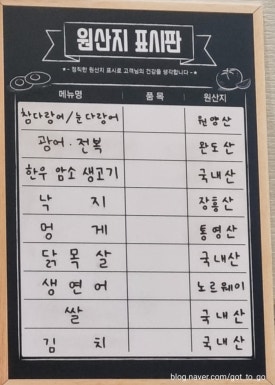 원산지 표시판
- 정직한 원산지 표시로 고객님의 건강을 생각합니다 -
메뉴명 품목 원산지
참다랑어/눈다랑어 원양산
광어·전복 완도산
한우 암소 생고기 국내산
낙지 장흥산
멍게 통영산
닭목살 국내산
생연어 노르웨이
쌀 국내산
김치 국내산
blog.naver.com/got_to_go